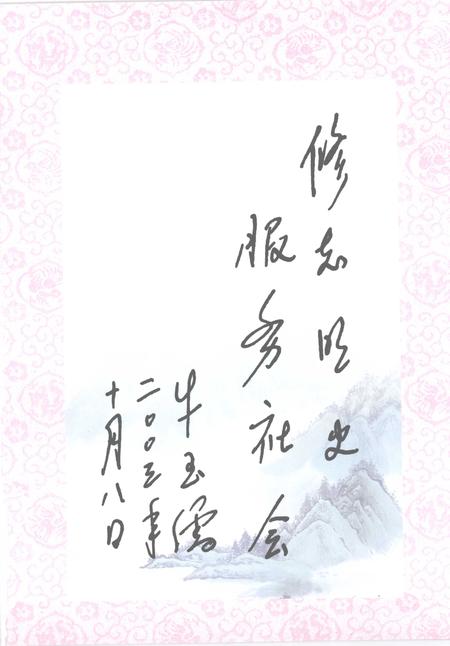 修志明史
服务社会
牛玉儒
二〇〇三年
十月八日